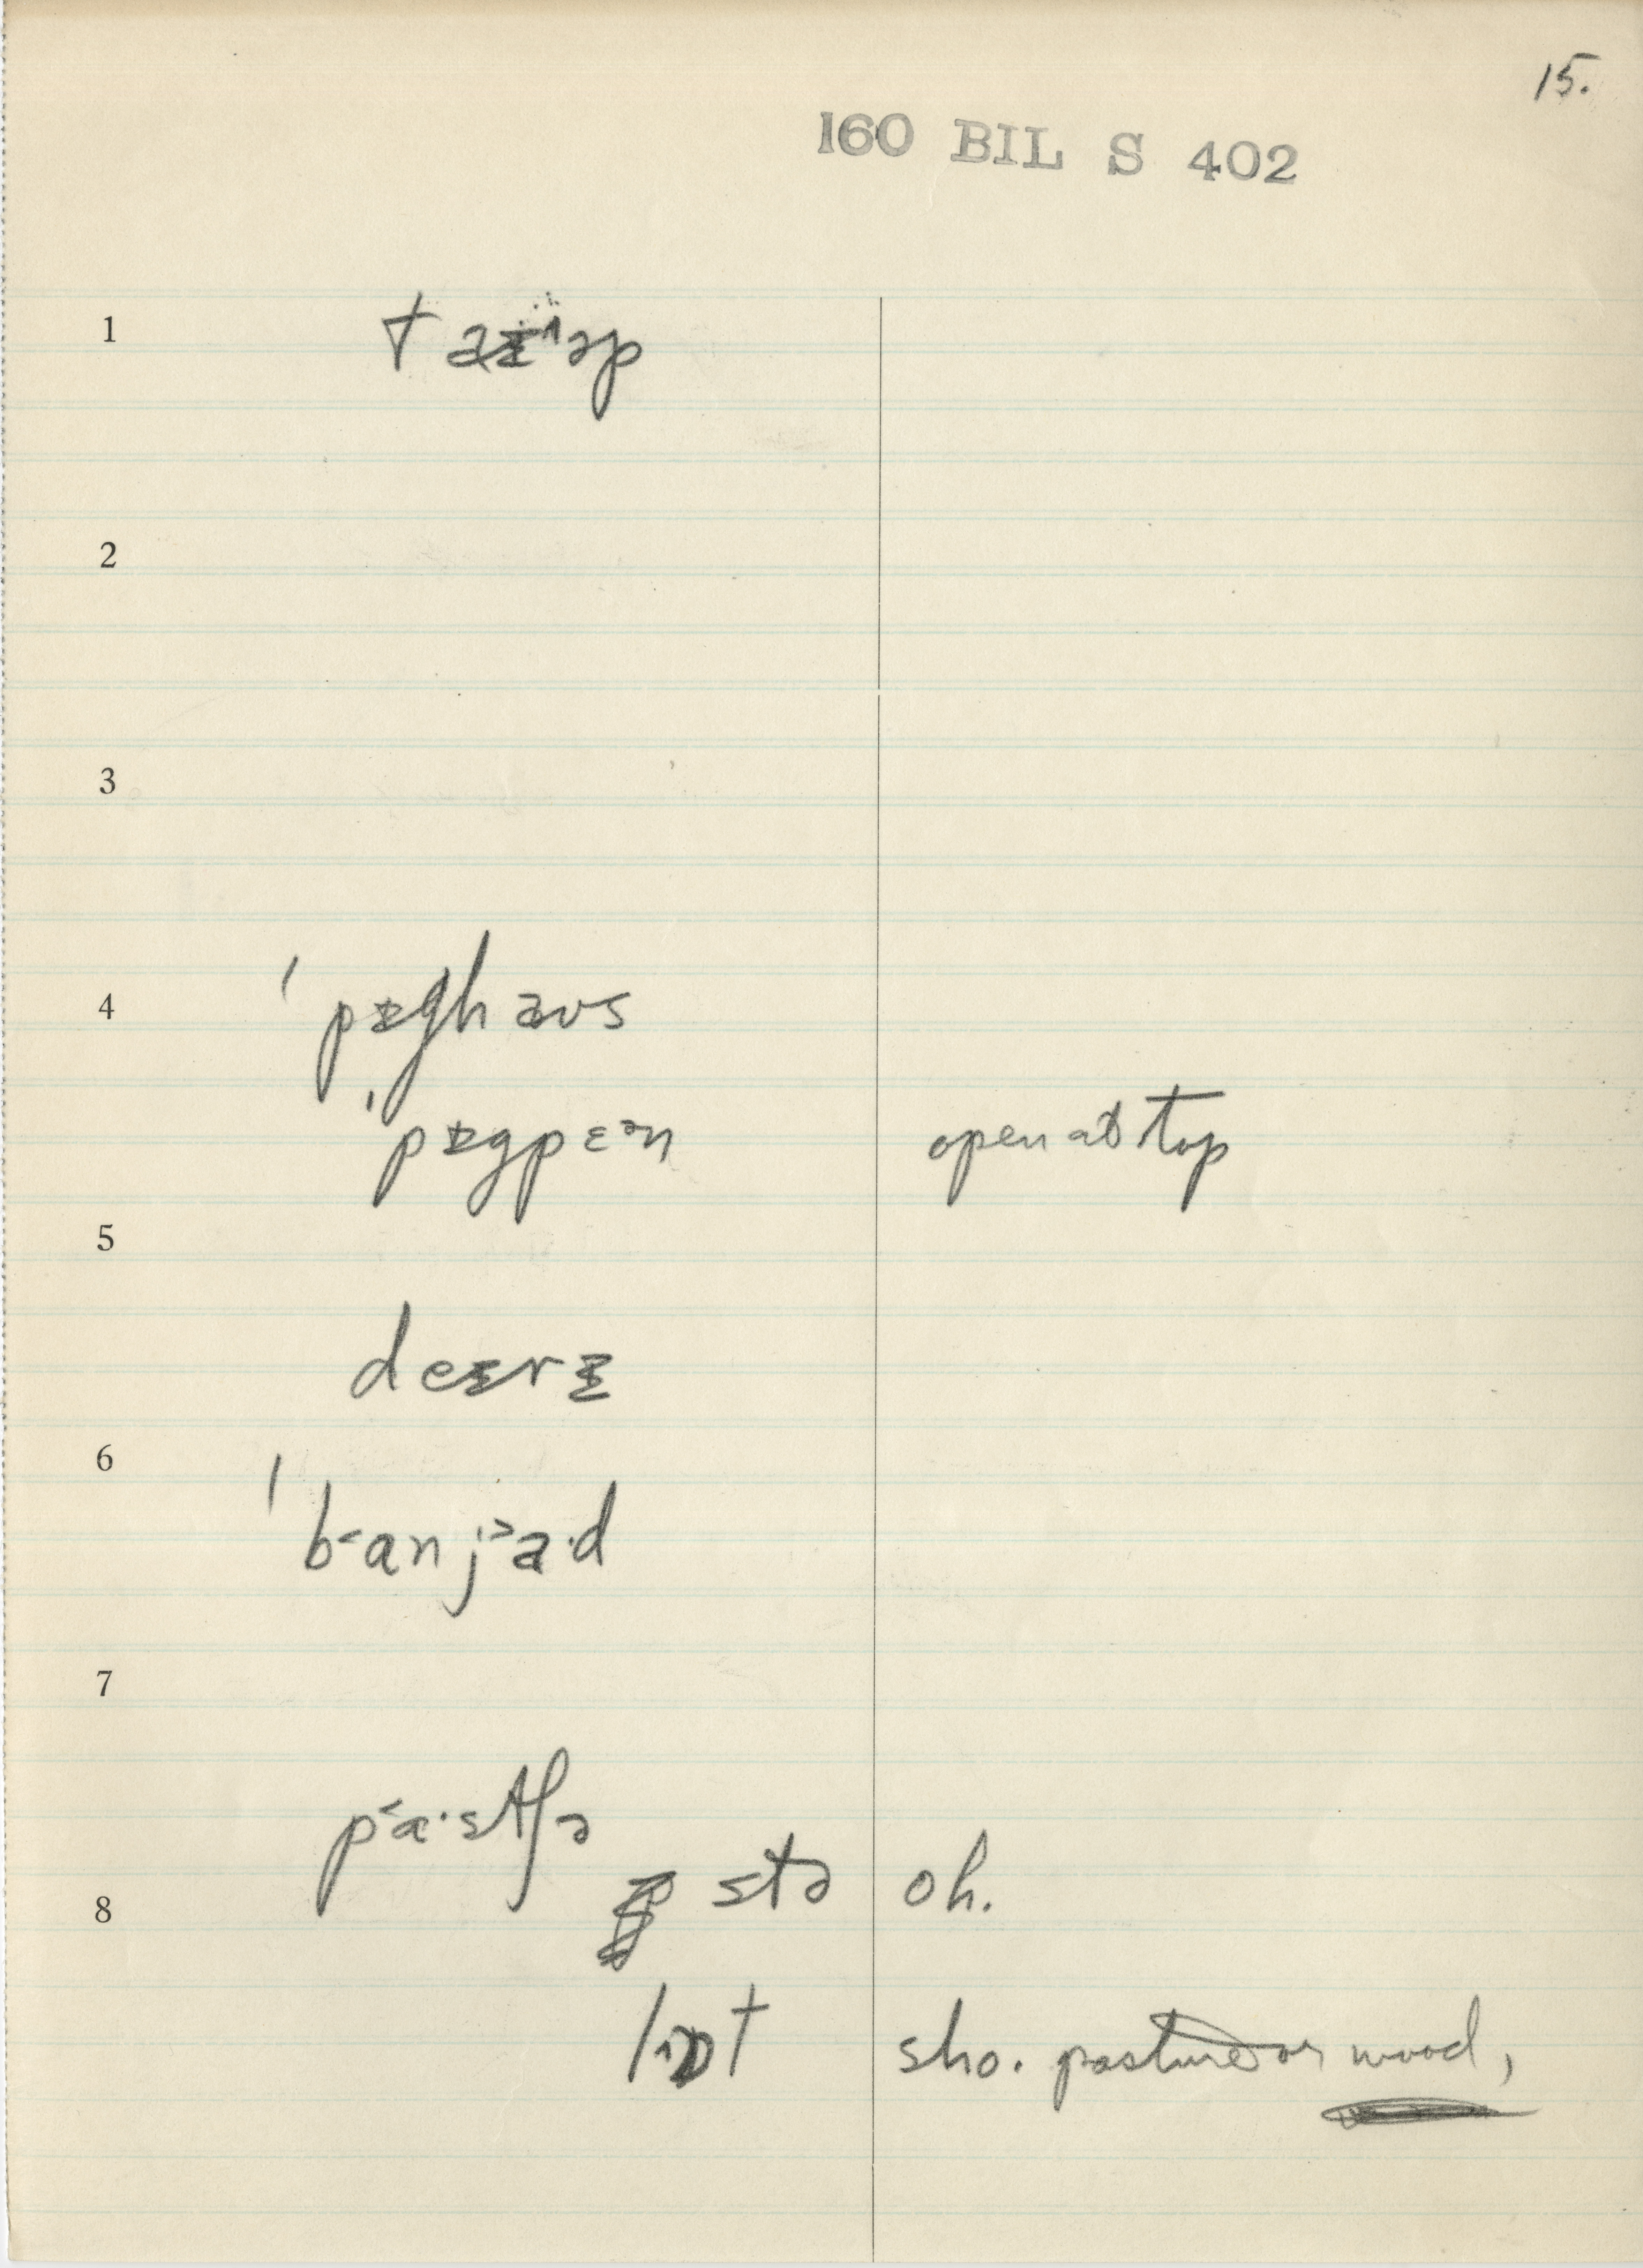 15.
160 BIL S 402
1
2
3
4
ˈpɪghaʊs
ˈpɪgpɛᵊn
open at top
5
deɪrɪ
6
ˈb˂anj˃a·d
7
p˂a·stʃə
8
stə
oh.
lɒt
sho. pasture or wood,